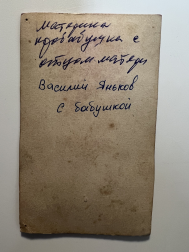 Матюшина
прабабушка с
отцом матери
Василий Яньков
с бабушкой